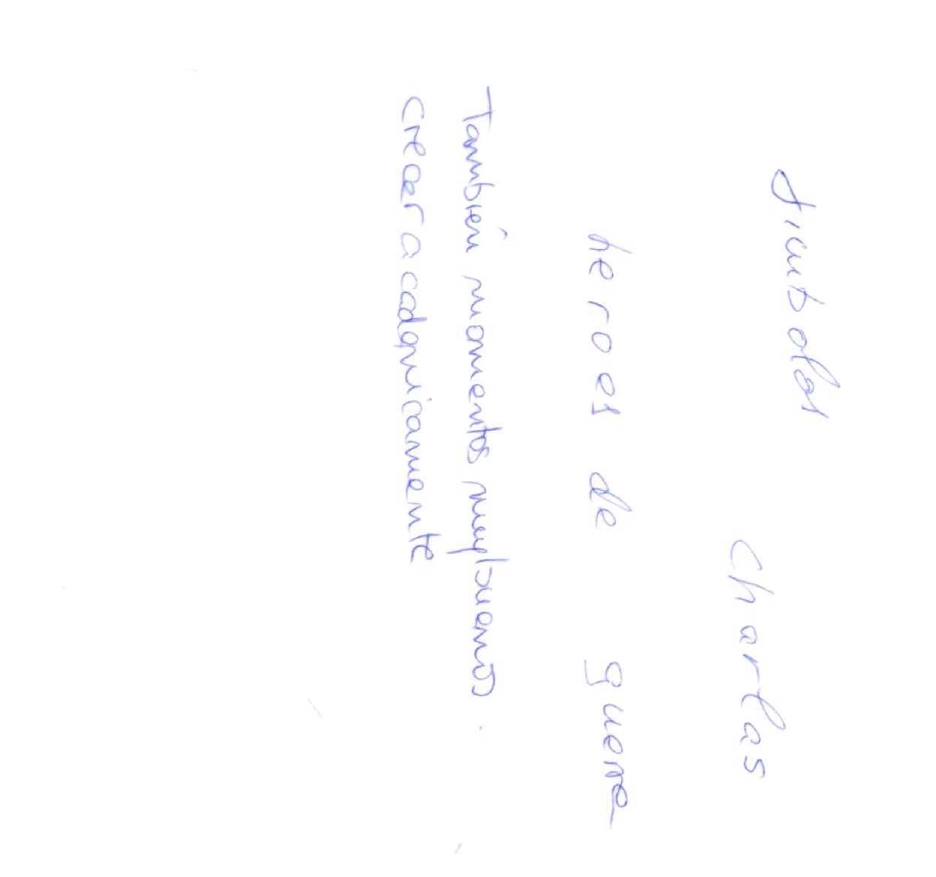 simbolos
charlas
heroes de guerra
También momentos muy buenos.
crecer academicamente